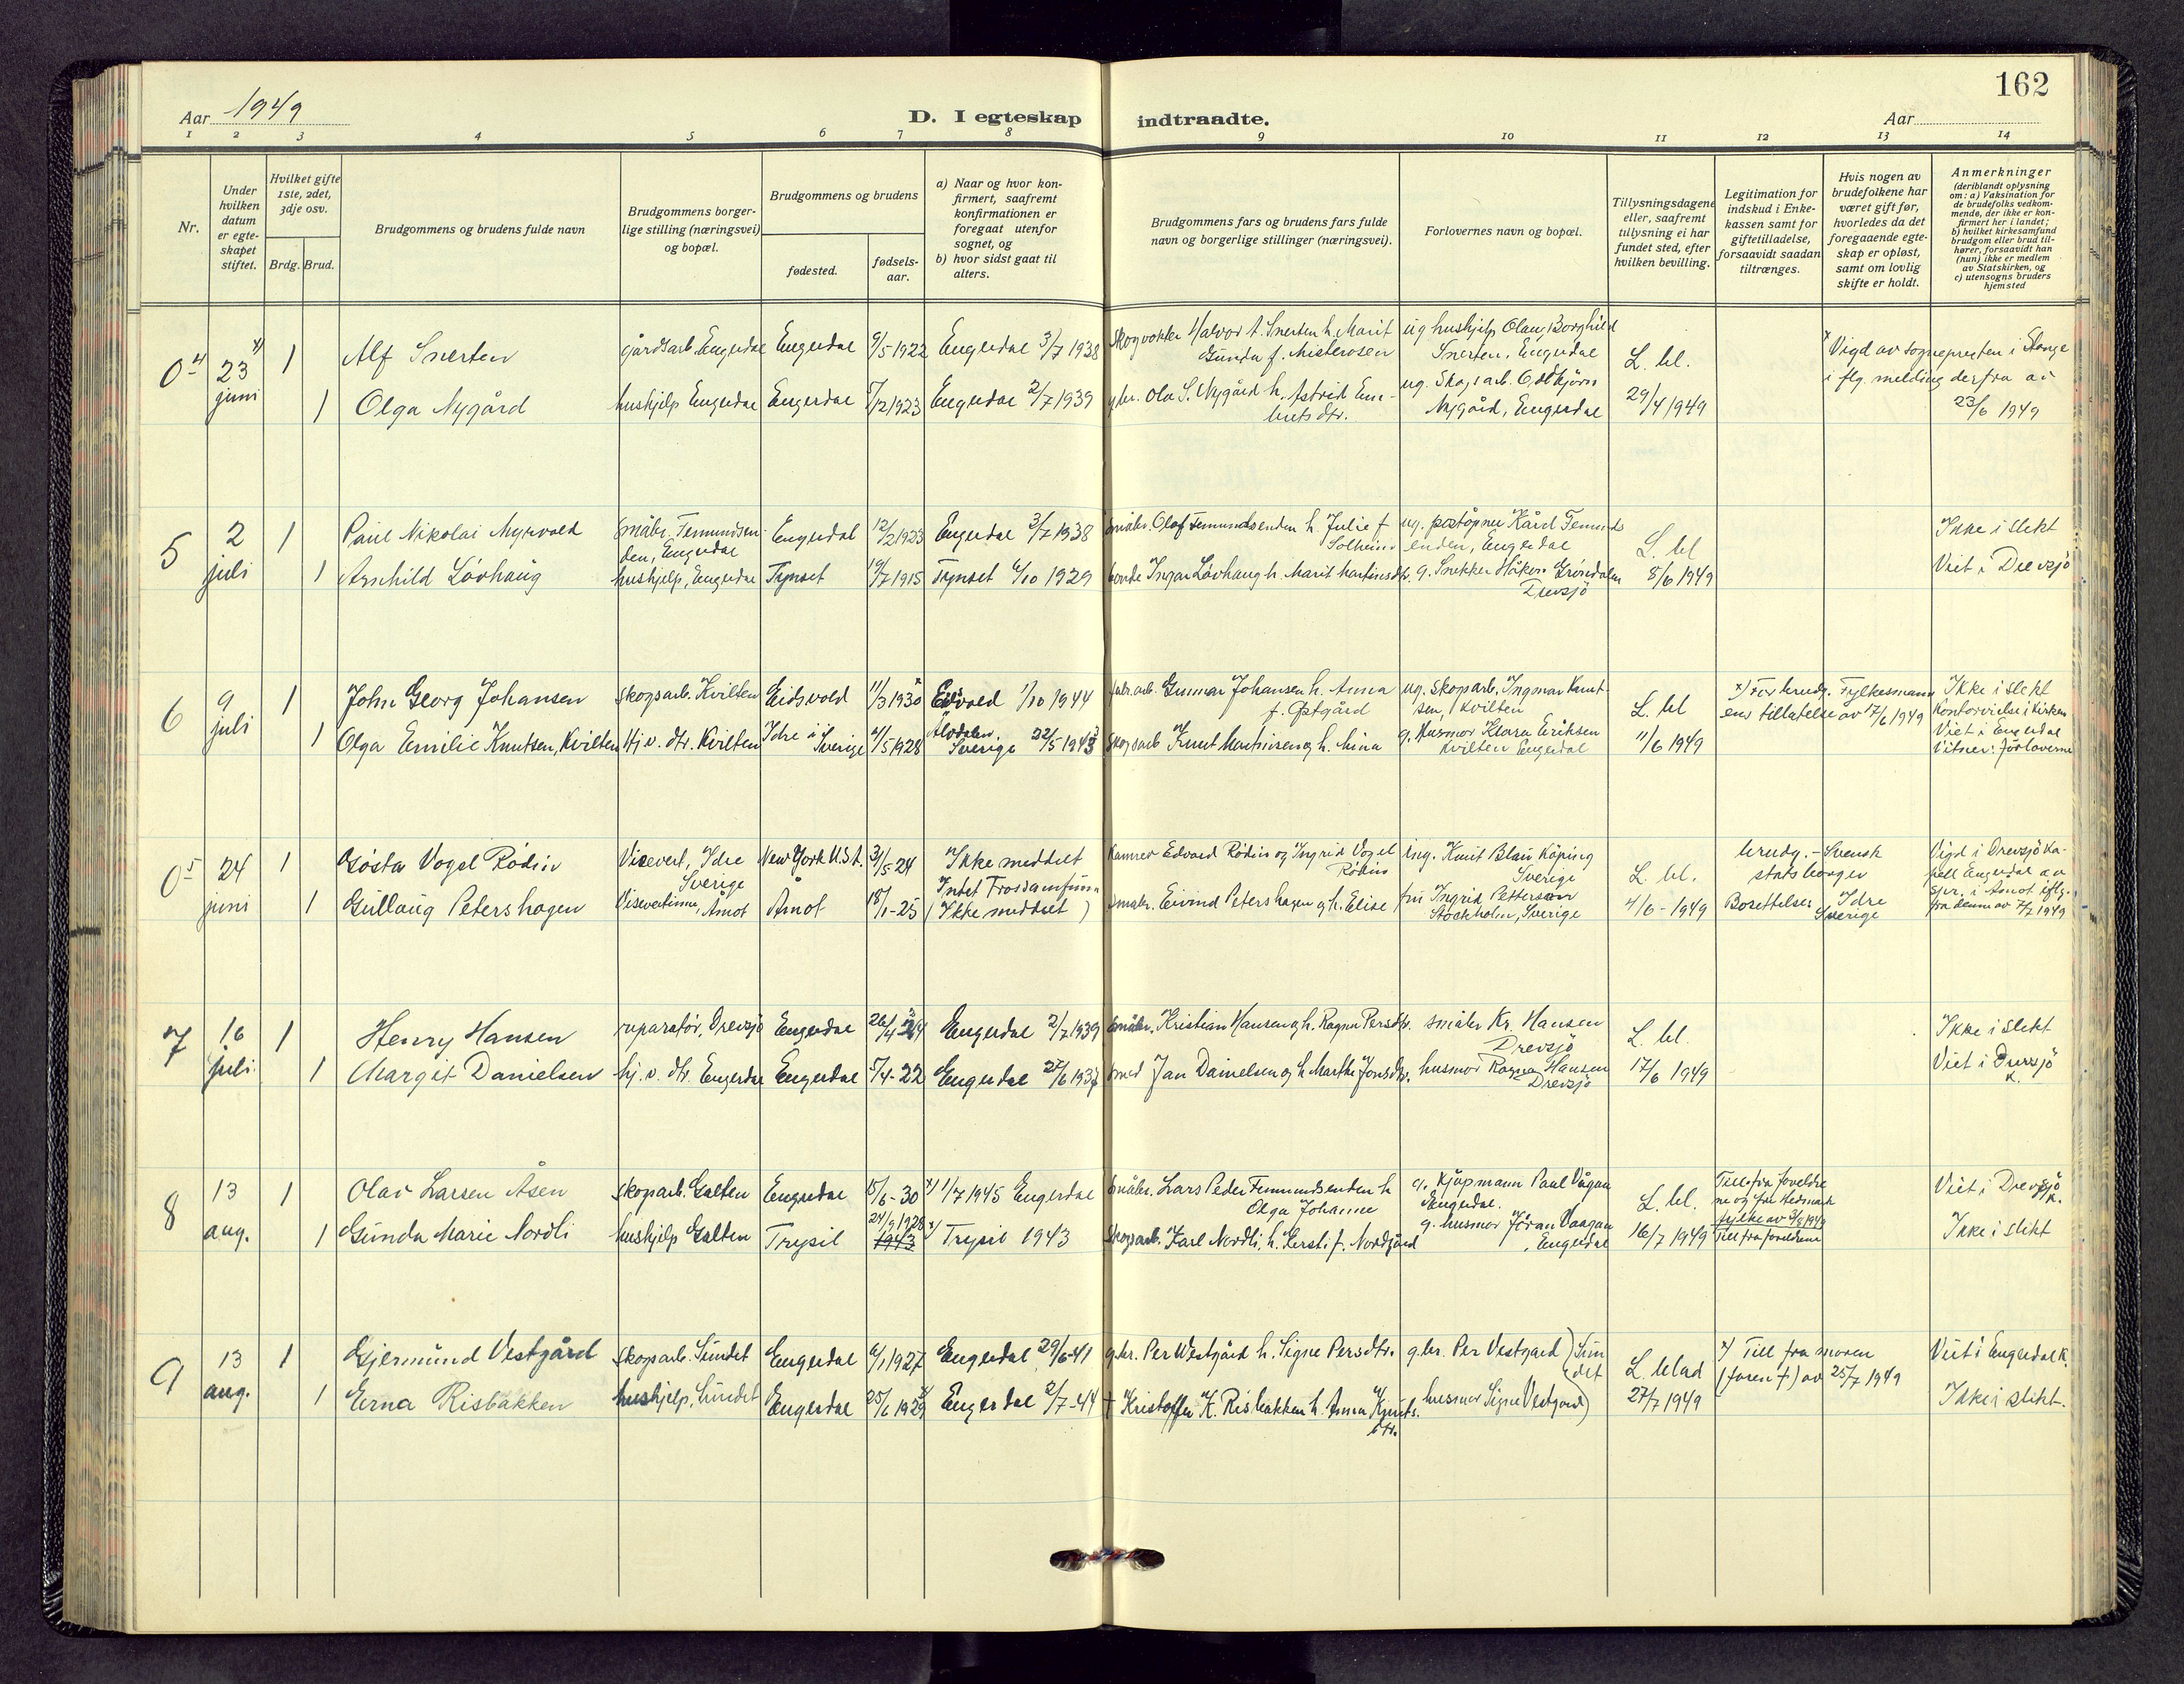 162
Aar 1949
D. I egteskap indtraadte.
Aar
1 2 3 4 5 6 7 8 9 10 11 12 13 14
Nr.
Under hvilken datum er egteskapet stiftet.
Hvilket gifte 1ste, 2det, 3dje osv.
Brdg. Brud.
Brudgommens og brudens fulde navn
Brudgommens borgerlige stilling (næringsvei) og bopæl.
Brudgommens og brudens
fødested.
fødselsaar.
a) Naar og hvor konfirmert, saafremt konfirmationen er foregaat utenfor sognet, og
b) hvor sidst gaat til alters.
Brudgommens fars og brudens fars fulde navn og borgerlige stillinger (næringsvei).
Forlovernes navn og bopæl.
Tillysningsdagene eller, saafremt tillysning ei har fundet sted, efter hvilken bevilling.
Legitimation for indskud i Enkekassen samt for giftetilladelse, forsaavidt saadan tiltrænges.
Hvis nogen av brudefolkene har været gift før, hvorledes da det foregaaende egteskap er opløst, samt om lovlig skifte er holdt.
Anmerkninger
(deriblandt oplysning om: a) Vaksination for de brudefolks vedkommende, der ikke er konfirmert her i landet; b) hvilket kirkesamfund brudgom eller brud tilhører, forsaavidt han (hun) ikke er medlem av Statskirken, og c) utensogns bruders hjemsted
0 4 23 x) juni
1 Alf Snerten gårdsarb. Engerdal Engerdal 9/5 1922 Engerdal 3/7 1938 Skogvokter Halvor A. Snerten h. Marit Gunda f. Misterosen ug hushjelp Olaug Borghild Snerten, Engerdal
1 Olga Nygård hushjelp Engerdal Engerdal 5/12 1923 Engerdal 2/7 1939 gbr. Ola S. Nygård h. Astrid Embretsdtr. ug. Skogsarb. Oddbjörn Nygård, Engerdal
L. bl. 29/4 1949
x Vigd av sognepresten i Stange i flg. melding derfra av 23/6 1949
5 2 juli
1 Paul Nikolai Myrvold Småbr. Femundsenden, Engerdal Engerdal 12/2 1923 Engerdal 3/7 1938 Småbr. Olaf Femundsenden h. Julie f Solheim ug. poståpner Kård Femundsenden, Engerdal
1 Arnhild Lövhaug hushjelp, Engerdal Tynset 19/7 1915 Tynset 6/10 1929 bonde Ingar Lövhaug h. Marit Martinsdtr. g. Snekker Håkon Gröndalen Drevsjö
L. bl 8/6 1949
Ikke i slekt
Viet i Drevsjö
6 9 juli
1 John Georg Johansen skogsarb. Kvilten Eidsvold 11/3 1930 x Eidsvold 1/10 1944 fabr. arb. Gunnar Johansen h. Anna f. Østgård ug. skogsarb. Ingmar Knutsen, Kvilten
1 Olga Emilie Knutsen, Kvilten Hj. v. dtr. Kvilten Idre i Sverige 4/5 1928 Älvdalen, Sverige 22/5 1943 Skogsarb Knut Martinsen og h. Mina g. Husmor Klara Eriksen Kvilten Engerdal
L. bl 11/6 1949
x) For brudg. Fylkesmannens tillatelse av 17/6 1949
Ikke i slekt
Kontorvielse i kirken
Viet i Engerdal
Vitner: forloverne
0 5 24 juni
1 Gösta Vogel Rödin Visevert, Idre Sverige New York U.S.A. 31/5-24 Ikke meddelt Intet Trossamfunn Kamrer Edvard Rödin og Ingrid Vogel Rödin Ing. Knut Blau Köping Sverige
1 Gullaug Petershagen Visevertinne, Åmot Åmot 18/1-25 (Ikke meddelt) Småbr. Eivind Petershagen og h. Elise fru Ingrid Petterson Stockholm, Sverige
L. bl. 4/6-1949
brudg. - Svensk statsborger
Bosettelse: Idre Sverige
Vigd i Drevsjö Kapell Engerdal av Spr. i Åmot iflg. fra denne av 7/7 1949
7 16 juli
1 Henry Hansen reparatör, Drevsjö Engerdal 26/4 24 Engerdal 2/7 1939 Småbr. Kristian Hansen og h. Ragna Persdtr. småbr Kr. Hansen Drevsjö
1 Margit Danielsen hj. v. dtr. Engerdal Engerdal 5/4-22 Engerdal 27/6 1937 Smed Jan Danielsen og h Marthe Jonsdtr. husmor Ragna Hansen Drevsjö
L. bl. 17/6 1949
Ikke i slekt
Viet i Drevsjö K.
8 13 aug.
1 Olav Larsen Åsen skogsarb. Galten Engerdal 15/6-30 x) 1/7 1945 Engerdal Småbr. Lars Peder Femundsenden h Olga Johanne g. Kjöpmann Paul Vågan Engerdal.
1 Gunda Marie Nordli hushjelp Galten Trysil 24/9 1928 1943 x) Trysil 1943 Skogsarb. Karl Nordli, h. Kersti f. Nordgård g. husmor Jöran Vaagan, Engerdal
L. bl. 16/7 1949
Till. fra foreldrene og fra Hedmark fylke av 9/8 1949
Till fra foreldrene
Viet i Drevsjö K.
Ikke i slekt
9 13 aug.
1 Gjermund Vestgård skogsarb. Sundet Engerdal 6/1 1927 Engerdal 29/6-41 g.br. Per Westgård h. Signe Persdtr. g.br. Per Vestgard ) Sundet
1 Erna Risbakken hushjelp, Sundet Engerdal 25/6 1929 x) Engerdal 2/7-44 + Kristoffer K. Risbakken h. Anna Knutsdtr. husmor Signe Vestgard)
L. blad 27/7 1949
x) Till fra moren (faren +) av 25/7 1949
Viet i Engerdal K.
Ikke i slekt.